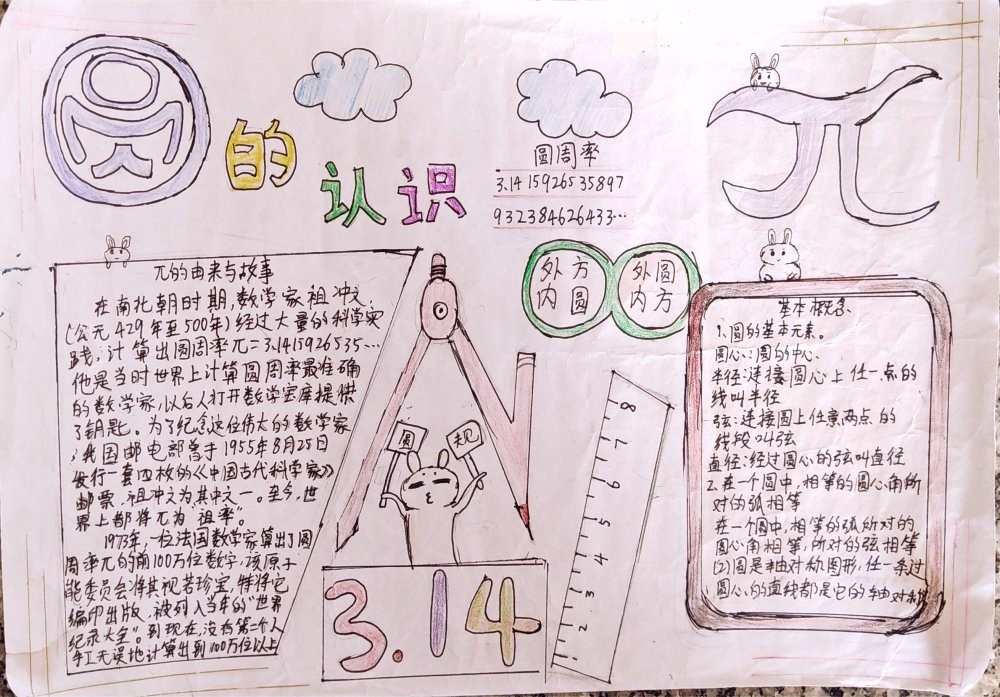 圆的认识
圆周率
3.1415926535897
932384626433…
π
外方
内圆
外圆
内方
π的由来与故事
在南北朝时期,数学家祖冲之
(公元429年至500年)经过大量的科学实
践,计算出圆周率π=3.1415926535…
他是当时世界上计算圆周率最准确
的数学家,以后人打开数学宏库提供
了钥匙。为了纪念这位伟大的数学家
,我国邮电部曾于1955年8月25日
发行一套四枚的《中国古代科学家》
邮票,祖冲之为其中之一。至今,世
界上都将π为"祖率"。
1973年,一位法国数学家算出了圆
周率π的前100万位数字,该原子
能委员会将其视若珍宝,特将它
编印出版,被列入当年的"世界
纪录大全"。到现在,没有第二个人
手工无误地计算出到100万位以上
圆规
3.14
8
7
6
5
4
3
2
1
基本概念
1、圆的基本元素。
圆心:圆的中心
半径:连接圆心上任一点的
线叫半径
弦:连接圆上任意两点的
线段叫弦
直径:经过圆心的弦叫直径
2.在一个圆中,相等的圆心角所
对的弧相等
在一个圆中,相等的弧所对的
圆心角相等,所对的弦相等
(2)圆是轴对称图形,任一条过
圆心的直线都是它的轴对称